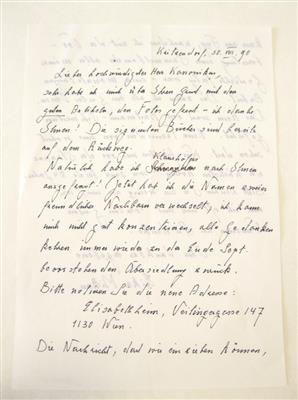 Kritzendorf, 30. VIII. 90
Lieber hochwürdigster Herr Kanonikus,
sehr habe ich mich über Ihren und mit den
guten Berichten, den Fotos gefreut – ich danke
Ihnen! Die signierten Bücher sind bereits
auf dem Rückweg.
Natürlich habe ich nach Ihnen
ausgefragt! (Jetzt hab ich die Namen zweier
freundlicher Nachbarn verwechselt, ich kann
mich nicht gut konzentrieren, alle Gedanken
kehren immer wieder zu der Ende Sept.
bevorstehenden Übersiedlung zurück.
Bitte notieren Sie die neue Adresse:
Elisabethheim, Veitingergasse 147
1130 Wien.
Die Nachricht, daß wir im sieben können,